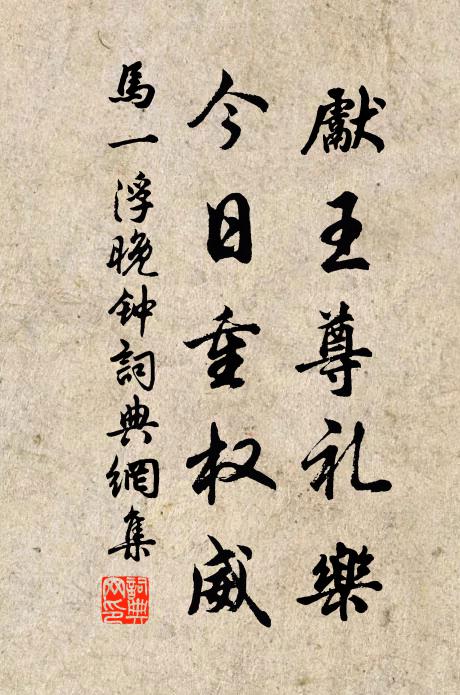 獻王尊礼樂
今日重权威
馬一浮晚钟詞典網集
詞典网印